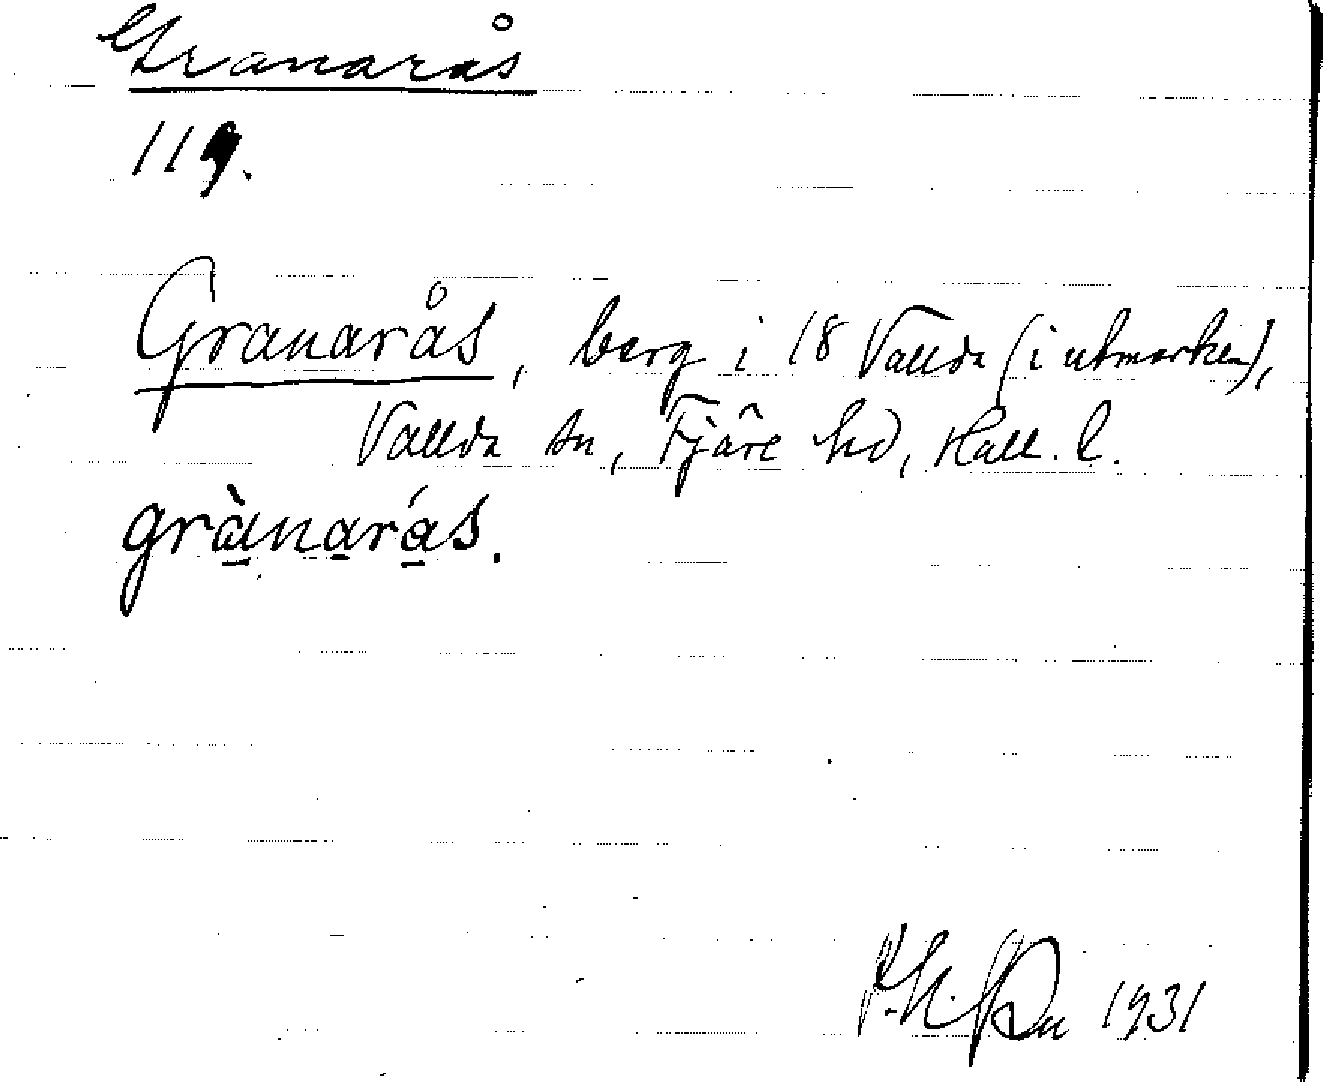 Granarås
119.
Granarås, berg i 18 Vallda (i utmarken),
Vallda sn, Fjäre hd, Hall. l.
grànarás.
1931